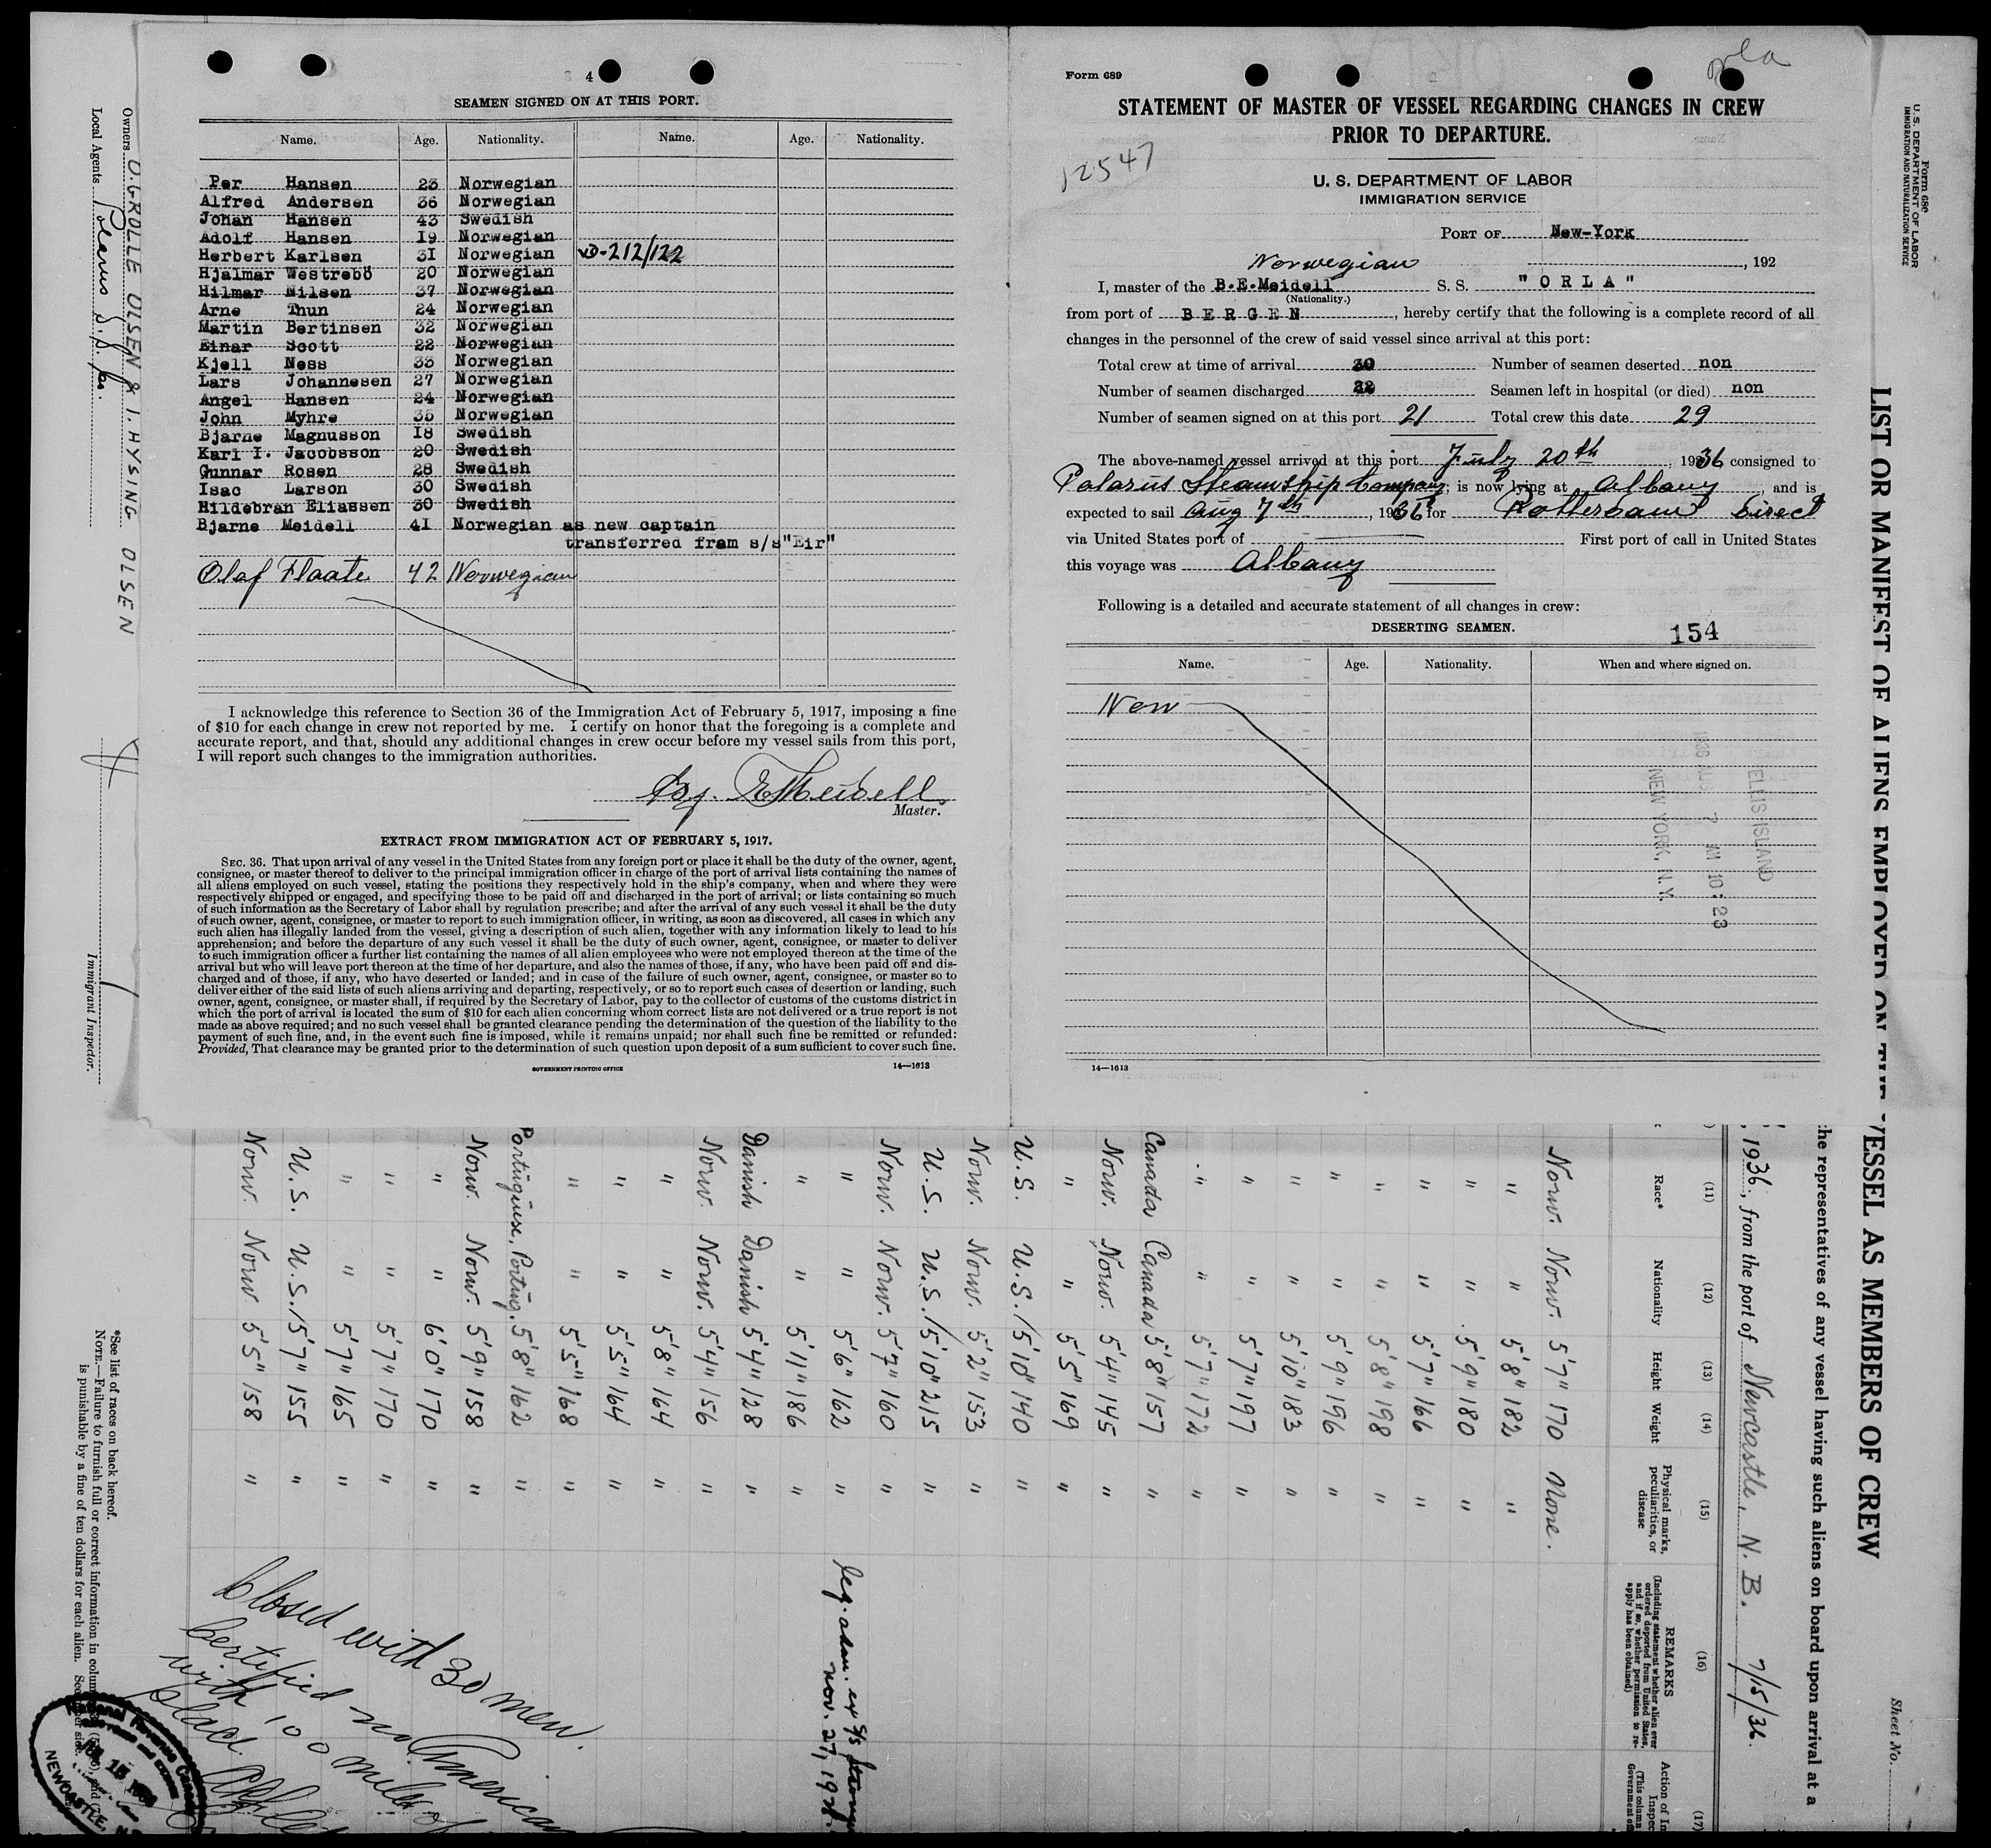 4
SEAMEN SIGNED ON AT THIS PORT.
Name. Age. Nationality. Name. Age. Nationality.
Per Hansen 23 Norwegian
Alfred Andersen 36 Norwegian
Johan Hansen 43 Swedish
Adolf Hansen 19 Norwegian
Herbert Karlsen 31 Norwegian VD-212/122
Hjalmar Westrebö 20 Norwegian
Hilmar Nilsen 37 Norwegian
Arne Thun 24 Norwegian
Martin Bertinsen 32 Norwegian
Einar Scott 22 Norwegian
Kjell Ness 33 Norwegian
Lars Johannesen 27 Norwegian
Angel Hansen 24 Norwegian
John Myhre 35 Norwegian
Bjarne Magnusson 18 Swedish
Karl I. Jacobsson 20 Swedish
Gunnar Rosen 28 Swedish
Isac Larson 30 Swedish
Hildebran Eliassen 30 Swedish
Bjarne Meidell 41 Norwegian as new captain
transferred fram s/s "Eir"
Olaf Flaate 42 Norwegian
I acknowledge this reference to Section 36 of the Immigration Act of February 5, 1917, imposing a fine
of $10 for each change in crew not reported by me. I certify on honor that the foregoing is a complete and
accurate report, and that, should any additional changes in crew occur before my vessel sails from this port,
I will report such changes to the immigration authorities.
Meidell
Master.
EXTRACT FROM IMMIGRATION ACT OF FEBRUARY 5, 1917.
SEC. 36. That upon arrival of any vessel in the United States from any foreign port or place it shall be the duty of the owner, agent,
consignee, or master thereof to deliver to the principal immigration officer in charge of the port of arrival lists containing the names of
all aliens employed on such vessel, stating the positions they respectively hold in the ship's company, when and where they were
respectively shipped or engaged, and specifying those to be paid off and discharged in the port of arrival; or lists containing so much
of such information as the Secretary of Labor shall by regulation prescribe; and after the arrival of any such vessel it shall be the duty
of such owner, agent, consignee, or master to report to such immigration officer, in writing, as soon as discovered, all cases in which any
such alien has illegally landed from the vessel, giving a description of such alien, together with any information likely to lead to his
apprehension; and before the departure of any such vessel it shall be the duty of such owner, agent, consignee, or master to deliver
to such immigration officer a further list containing the names of all alien employees who were not employed thereon at the time of the
arrival but who will leave port thereon at the time of her departure, and also the names of those, if any, who have been paid off and dis-
charged and of those, if any, who have deserted or landed; and in case of the failure of such owner, agent, consignee, or master so to
deliver either of the said lists of such aliens arriving and departing, respectively, or so to report such cases of desertion or landing, such
owner, agent, consignee, or master shall, if required by the Secretary of Labor, pay to the collector of customs of the customs district in
which the port of arrival is located the sum of $10 for each alien concerning whom correct lists are not delivered or a true report is not
made as above required; and no such vessel shall be granted clearance pending the determination of the question of the liability to the
payment of such fine, and, in the event such fine is imposed, while it remains unpaid; nor shall such fine be remitted or refunded:
Provided, That clearance may be granted prior to the determination of such question upon deposit of a sum sufficient to cover such fine.
GOVERNMENT PRINTING OFFICE 14—1613
Form 689
Orla
STATEMENT OF MASTER OF VESSEL REGARDING CHANGES IN CREW
PRIOR TO DEPARTURE.
12547
U. S. DEPARTMENT OF LABOR
IMMIGRATION SERVICE
PORT OF New-York
Norwegian , 192
I, master of the B.E.Meidell S. S. "ORLA"
(Nationality.)
from port of BERGEN, hereby certify that the following is a complete record of all
changes in the personnel of the crew of said vessel since arrival at this port:
Total crew at time of arrival 30 Number of seamen deserted non
Number of seamen discharged 22 Seamen left in hospital (or died) non
Number of seamen signed on at this port 21 Total crew this date 29
The above-named vessel arrived at this port July 20th, 1936 consigned to
Polarus Steamship Company; is now lying at Albany and is
expected to sail Aug 7th, 1936 for Rotterdam direct
via United States port of First port of call in United States
this voyage was Albany
Following is a detailed and accurate statement of all changes in crew:
DESERTING SEAMEN. 154
Name. Age. Nationality. When and where signed on.
Non
ELLIS ISLAND
1936 AUG 7 AM 10:23
NEW YORK, N.Y.
14—1613
Owners O. GROLLE OLSEN & I. HYSING OLSEN
Local Agents Polarus S.S. Co.
Immigrant Inspector.
Form 680
U. S. DEPARTMENT OF LABOR
IMMIGRATION AND NATURALIZATION SERVICE
Sheet No.
LIST OR MANIFEST OF ALIENS EMPLOYED ON THE VESSEL AS MEMBERS OF CREW
he representatives of any vessel having such aliens on board upon arrival at a
, 1936, from the port of Newcastle, N.B. 7/15/36.
(11) (12) (13) (14) (15) (16) (17)
Race* Nationality Height Weight Physical marks, peculiarities, or disease
REMARKS
(Including statement whether alien ever
ordered deported from United States,
and if so, whether permission to re-
apply has been obtained)
Action of In
Inspec
(This column
Government off
Norw. Norw. 5'7" 170 None.
" " 5'8" 182 "
" " 5'9" 180 "
" " 5'7" 166 "
" " 5'8" 198 "
" " 5'9" 196 "
" " 5'10" 183 "
" " 5'7" 197 "
" " 5'7" 172 "
Canada Canada 5'8" 157 "
Norw. Norw. 5'4" 145 "
" " 5'5" 169 "
U.S. U.S. 5'10" 140 "
Norw. Norw. 5'2" 153 "
U.S. U.S. 5'10" 215 "
Norw. Norw. 5'7" 160 "
" " 5'6" 162 " leg. adm. ex S/S
nov. 27, 192
" " 5'11" 186 "
Danish Danish 5'4" 128 "
Norw. Norw. 5'4" 156 "
" " 5'8" 164 "
" " 5'5" 164 "
" " 5'5" 168 "
Portuguese, Portug. 5'8" 162 "
Norw. Norw. 5'9" 158 "
" " 6'0" 170 "
" " 5'7" 170 "
" " 5'7" 165 "
U.S. U.S. 5'7" 155 "
Norw. Norw 5'5" 158 "
Closed with 30 men.
Certified no American
with 100 miles of
place.
*See list of races on back hereof.
NOTE.—Failure to furnish full or correct information in colum
is punishable by a fine of ten dollars for each alien. See side.
National Revenue Canada
15 1936
NEWCASTLE, N.B.